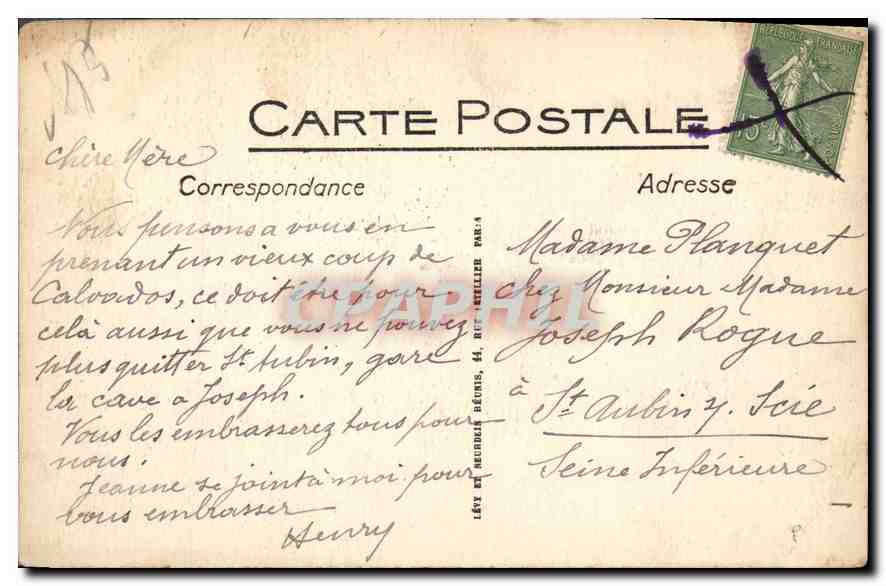 V15
RÉPUBLIQUE FRANÇAISE
15
CARTE POSTALE
Correspondance
Adresse
chère Mère
Nous pensons a vous en
prenant un vieux coup de
Calvados, ce doit être pour
celà aussi que vous ne pouvez
plus quitter St Aubin, gare
la cave a Joseph.
Vous les embrasserez tous pour
nous.
Jeanne se joint à moi pour
vous embrasser
Henry
LÉVY ET NEURDEIN RÉUNIS, 44, RUE LETELLIER PARIS
Madame Planquet
chez Monsieur Madame
Joseph Rogue
à St. Aubin s/ Scie
Seine Inférieure
CPAPHIL